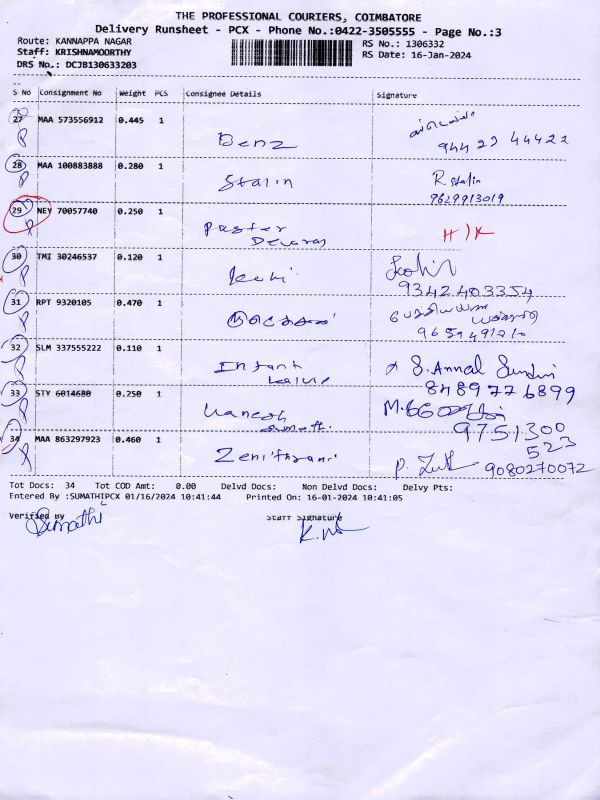 THE PROFESSIONAL COURIERS, COIMBATORE
Delivery Runsheet - PCX - Phone No.:0422-3505555 - Page No.:3
Route: KANNAPPA NAGAR
Staff: KRISHNAMOORTHY
DRS No.: DCJB130633203
RS No.: 1306332
RS Date: 16-Jan-2024
S No Consignment No Weight PCS Consignee Details Signature
27 MAA 573556912 0.445 1
Benz
944 22 44422
28 MAA 100883888 0.280 1
Stalin R stalin
9629913019
29 NEY 70057740 0.250 1
Paster
30 TMI 30246537 0.120 1
9342403354
31 RPT 9320105 0.470 1
32 SLM 337555222 0.110 1
8489776899
33 STY 6014680 0.250 1
9751300
523
34 MAA 863297923 0.460 1
9080270072
Tot Docs: 34 Tot COD Amt: 0.00 Delvd Docs: Non Delvd Docs: Delvy Pts:
Entered By :SUMATHIPCX 01/16/2024 10:41:44 Printed On: 16-01-2024 10:41:05
Verified By Staff Signature
Sumathi